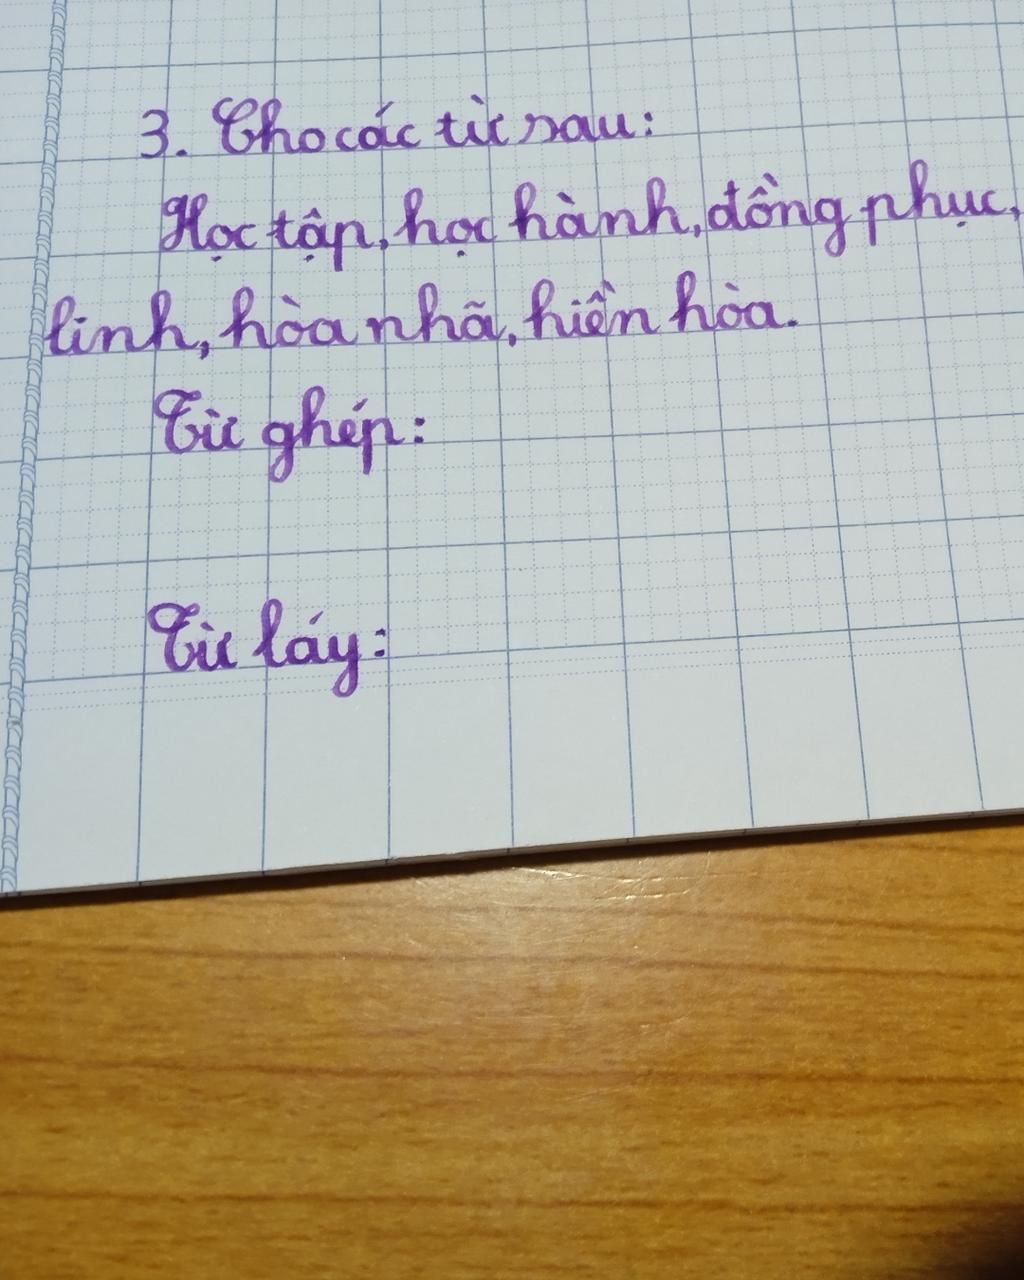 3. Cho các từ sau:
Học tập, học hành, đồng phục,
linh, hòa nhã, hiền hòa.
Từ ghép:
Từ láy: